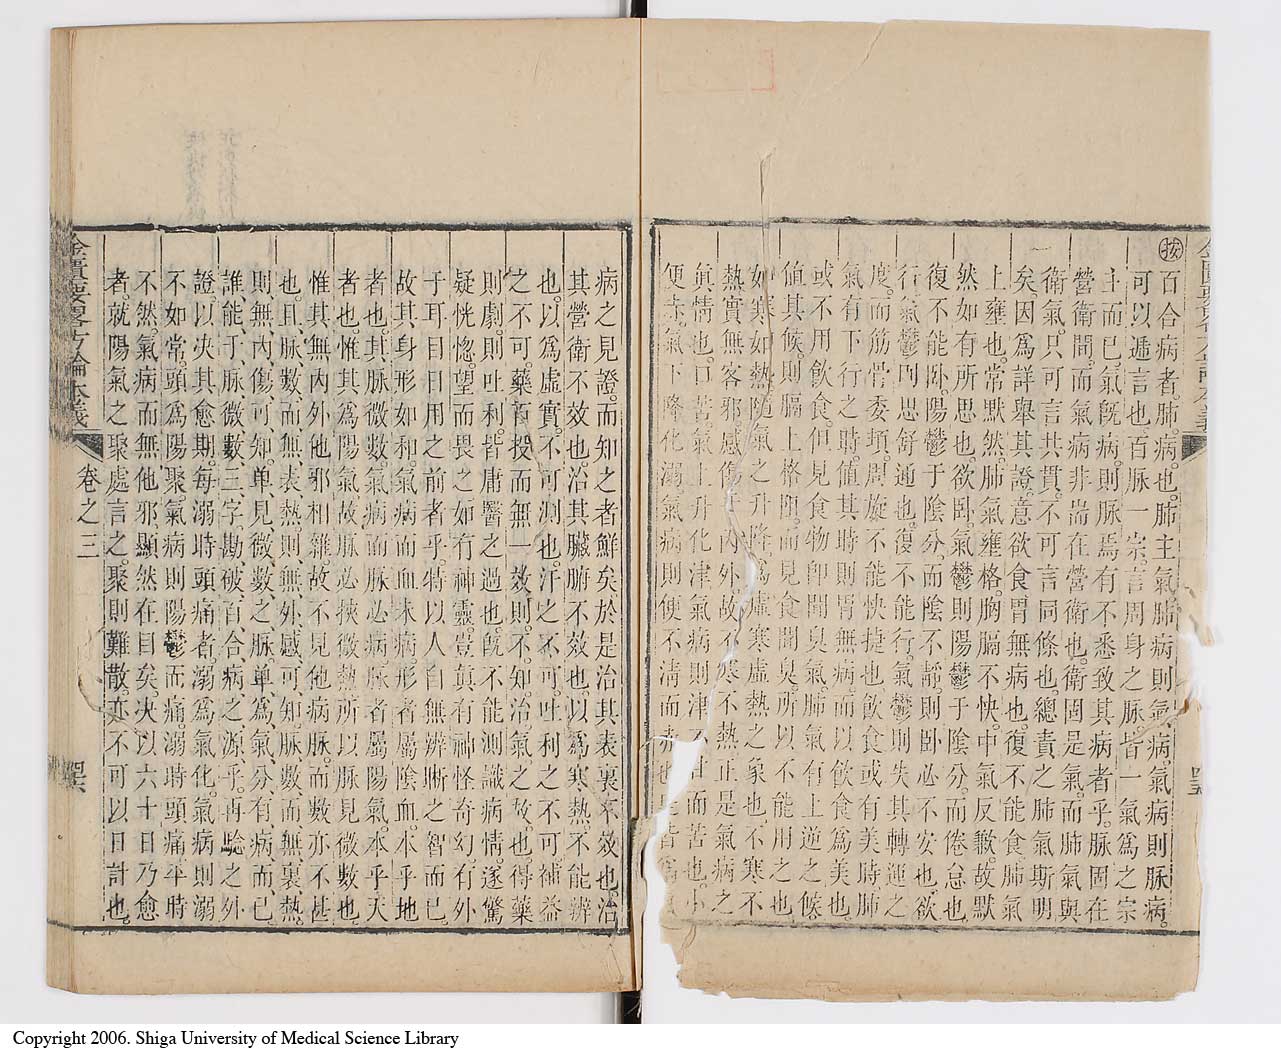 按百合病者。肺病也。肺主氣。肺病則氣病。氣病則脉病。
可以遞言也。百脉一宗。言周身之脉。皆一氣爲之宗
主而已。氣旣病。則脉焉有不悉致其病者乎。脉固在
營衛間。而氣病非耑在營衛也。衛固是氣。而肺氣與
衛氣。只可言共貫。不可言同條也。總責之肺氣斯明
矣。因爲詳舉其證。意欲食。胃無病也。復不能食。肺氣
上壅也。常默然。肺氣壅格。胸膈不快。中氣反歉。故默
然如有所思也。欲卧。氣鬱則陽鬱于陰分。而倦怠也。
復不能卧。陽鬱于陰分。而陰不靜。則卧必不安也。欲
行。氣鬱則思舒通也。復不能行。氣鬱則失其轉運之
度。而筋骨委頓。周旋不能快捷也。飲食或有美時。肺
氣有下行之時。値其時則胃無病。而以飲食爲美也。
或不用飲食。但見食物卽聞臭氣。肺氣有上逆之候。
値其候。則膈上格阻。而見食聞臭。所以不能用之也。
如寒如熱。隨氣之升降。爲虛寒虛熱之象也。不寒不
熱。實無客邪。感傷于內外。故不寒不熱。正是氣病之
眞情也。口苦。氣上升化津。氣病則津不 而苦也。小
便赤。氣下降化溺。氣病則便不淸而赤也。是皆爲氣
病之見證。而知之者鮮矣。於是治其表裏不效也。治
其營衛不效也。治其臟腑不效也。以爲寒熱。不能辨
也。以爲虛實。不可測也。汗之不可。吐利之不可。補益
之不可。藥百投而無一效。則不知治氣之故也。得藥
則劇。則吐利。皆庸醫之過也。旣不能測識病情。遂驚
疑恍惚。望而畏之。如有神靈。豈眞有神怪奇幻。有外
于耳目日用之前者乎。特以人自無辨晰之智而已。
故其身形如和。氣病而血未病。形者屬陰血。本乎地
者也。其脉微數。氣病而脉必病。脉者屬陽氣。本乎天
者也。惟其爲陽氣。故脉必挾微熱。所以脉見微數也。
惟其無內外他邪相雜。故不見他病脉。而數亦不甚
也。且脉數而無表熱。則無外感可知。脉數而無裏熱。
則無內傷可知。单見微數之脉。单爲氣分有病而已。
誰能于脉微數三字勘破百合病之源乎。再騐之外
證。以决其愈期。每溺時頭痛者。溺爲氣化。氣病則溺
不如常。頭爲陽聚。氣病則陽鬱而痛。溺時頭痛。平時
不然。氣病而無他邪。顯然在目矣。决以六十日乃愈
者。就陽氣之聚處言之。聚則難散。亦不可以日計也。
金匱要畧方論本義
卷之三
Copyright 2006. Shiga University of Medical Science Library